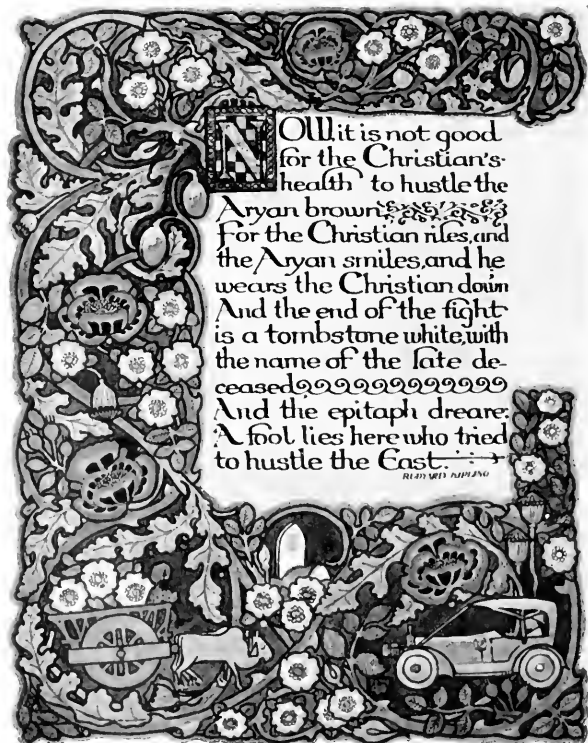 NOW it is not good
for the Christian's
health to hustle the
Aryan brown
For the Christian riles, and
the Aryan smiles, and he
wears the Christian down
And the end of the fight
is a tombstone white, with
the name of the late de-
ceased
And the epitaph dreare:
A fool lies here who tried
to hustle the East.
RUDYARD KIPLING